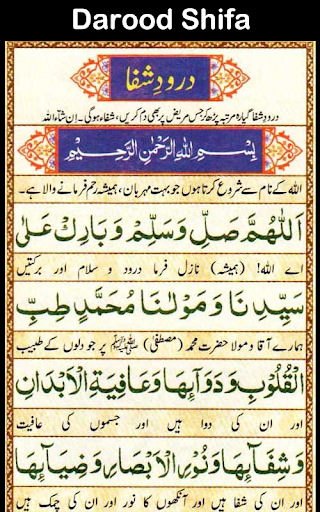 Darood Shifa
درودِ شفا
درودِ شفا گیارہ مرتبہ پڑھ کر جس مریض پر بھی دم کریں، شفاء ہوگی۔ اِن شآءاللہ
بِسْمِ اللهِ الرَّحْمٰنِ الرَّحِيْمِ
اللہ کے نام سے شروع کرتا ہوں جو بہت مہربان، ہمیشہ رحم فرمانے والا ہے۔
اَللّٰهُمَّ صَلِّ وَسَلِّمْ وَبَارِكْ عَلٰى
اے اللہ! (ہمیشہ) نازل فرما درود و سلام اور برکتیں
سَيِّدِنَا وَمَوْلٰنَا مُحَمَّدٍ طِبِّ
ہمارے آقا و مولا حضرت محمد (مصطفٰی) ﷺ پر جو دلوں کے طبیب
الْقُلُوْبِ وَدَوَآئِهَا وَعَافِيَةِ الْاَبْدَانِ
اور ان کی دوا ہیں اور جسموں کی عافیت
وَشِفَآئِهَا وَنُوْرِ الْاَبْصَارِ وَضِيَآئِهَا
اور ان کی شفا ہیں اور آنکھوں کا نور اور ان کی چمک ہیں